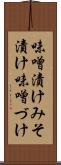 味噌漬けみそ
漬け味噌づけ